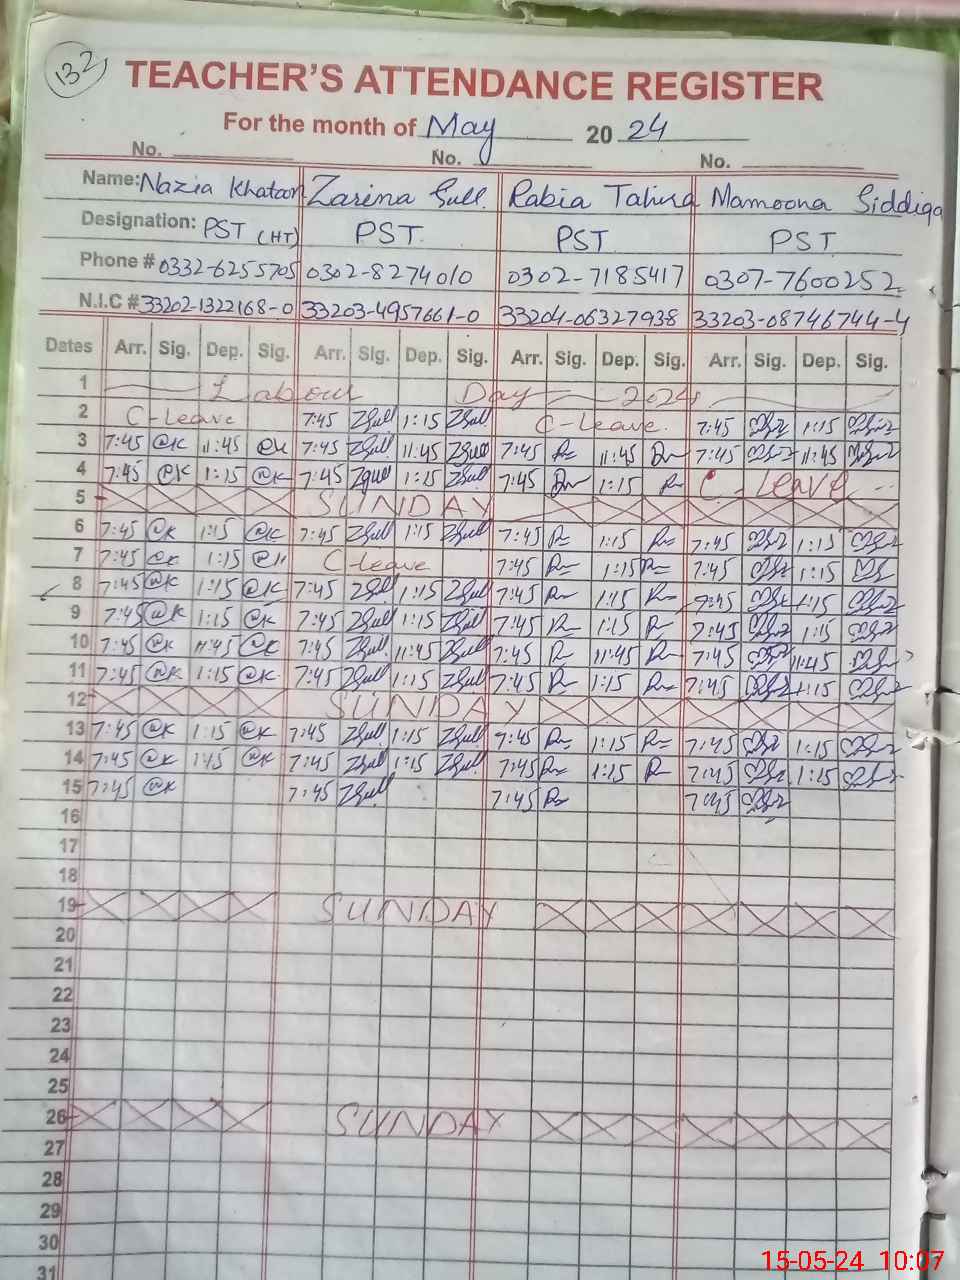 132
TEACHER'S ATTENDANCE REGISTER
For the month of May 2024
No. No. No.
Name: Nazia Khatoon Zarina Gull Rabia Tahira Mamoona Siddiqa
Designation: PST (HT) PST PST PST
Phone # 0332-6255705 0302-8274010 0302-7185417 0307-7600252
N.I.C # 33202-1322168-0 33203-4957661-0 33204-06327938 33203-08746744-4
Dates Arr. Sig. Dep. Sig. Arr. Sig. Dep. Sig. Arr. Sig. Dep. Sig. Arr. Sig. Dep. Sig.
1 Labour Day 2024
2 C-Leave 7:45 ZGull 1:15 ZGull C-Leave. 7:45 1:15
3 7:45 @K 11:45 @K 7:45 ZGull 11:45 ZGull 7:45 11:45 7:45 11:45
4 7:45 @K 1:15 @K 7:45 ZGull 1:15 ZGull 7:45 1:15 C-Leave
5 SUNDAY
6 7:45 @K 1:15 @K 7:45 ZGull 1:15 ZGull 7:45 1:15 7:45 1:15
7 7:45 @K 1:15 @K C-Leave 7:45 1:15 7:45 1:15
8 7:45 @K 1:15 @K 7:45 ZGull 1:15 ZGull 7:45 1:15 7:45 1:15
9 7:45 @K 1:15 @K 7:45 ZGull 1:15 ZGull 7:45 1:15 7:45 1:15
10 7:45 @K 11:45 @K 7:45 ZGull 11:45 ZGull 7:45 11:45 7:45 11:45
11 7:45 @K 1:15 @K 7:45 ZGull 1:15 ZGull 7:45 1:15 7:45 1:15
12 SUNDAY
13 7:45 @K 1:15 @K 7:45 ZGull 1:15 ZGull 7:45 1:15 7:45 1:15
14 7:45 @K @K 7:45 ZGull 1:15 ZGull 7:45 1:15 7:45 1:15
15 7:45 @K 7:45 ZGull 7:45 7:45
16
17
18
19 SUNDAY
20
21
22
23
24
25
26 SUNDAY
27
28
29
30
31
15-05-24 10:07